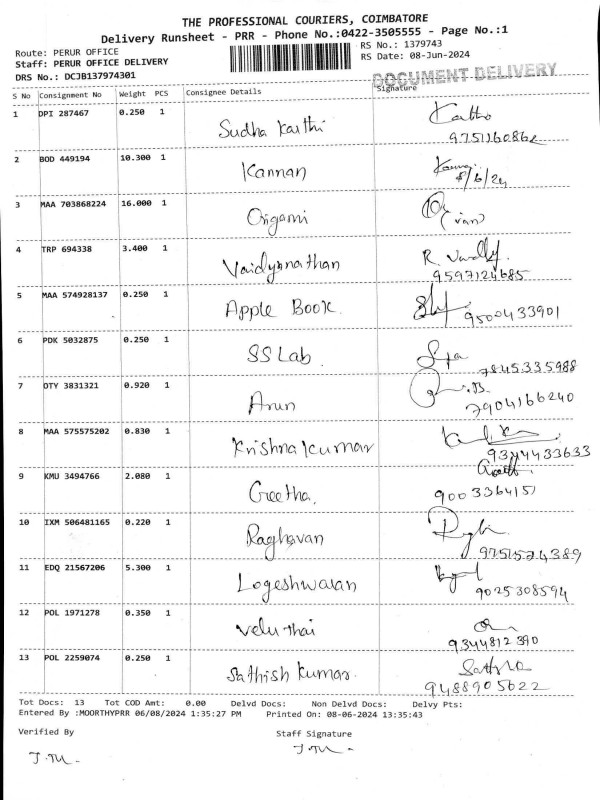 THE PROFESSIONAL COURIERS, COIMBATORE
Delivery Runsheet - PRR - Phone No.:0422-3505555 - Page No.:1
Route: PERUR OFFICE
RS No.: 1379743
Staff: PERUR OFFICE DELIVERY
RS Date: 08-Jun-2024
DRS No.: DCJB137974301
DOCUMENT DELIVERY
S No Consignment No Weight PCS Consignee Details Signature
1 DPI 287467 0.250 1 Sudha Karthi
9751160862
2 BOD 449194 10.300 1 Kannan
8/6/24
3 MAA 703868224 16.000 1 Origami
4 TRP 694338 3.400 1 Vaidyanathan
9597124685
5 MAA 574928137 0.250 1 Apple Book 9500433901
6 PDK 5032875 0.250 1 SS Lab
7845335988
7 OTY 3831321 0.920 1 Arun
7904166240
8 MAA 575575202 0.830 1 Krishna kumar
9344433633
9 KMU 3494766 2.080 1 Geetha
9003364151
10 IXM 506481165 0.220 1 Raghavan
9751574389
11 EDQ 21567206 5.300 1 Logeshwaran
9025308594
12 POL 1971278 0.350 1 Velu thai
9344812390
13 POL 2259074 0.250 1 Sathish kumar
9488905622
Tot Docs: 13 Tot COD Amt: 0.00 Delvd Docs: Non Delvd Docs: Delvy Pts:
Entered By :MOORTHYPRR 06/08/2024 1:35:27 PM Printed On: 08-06-2024 13:35:43
Verified By Staff Signature